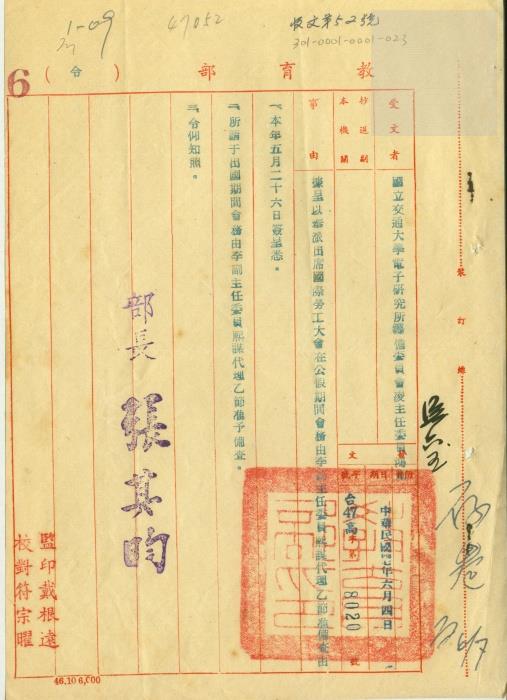 1-09
47052
收文第52號
301-0001-0001-023
6
教育部
(令)
受文者
國立交通大學電子研究所籌備委員會凌主任委員
抄送副本機關
事由
據呈以奉派出席國際勞工大會在公假期間會務由李副主任委員熙謀代理乙節准備查由
一、本年五月二十六日簽呈悉。
二、所請于出國期間會務由李副主任委員熙謀代理乙節准予備查。
三、令仰知照。
部長 張其昀
中華民國47年六月四日
台47高字第8020號
監印戴根遠
校對符宗曜
裝訂線
46.10 6,000